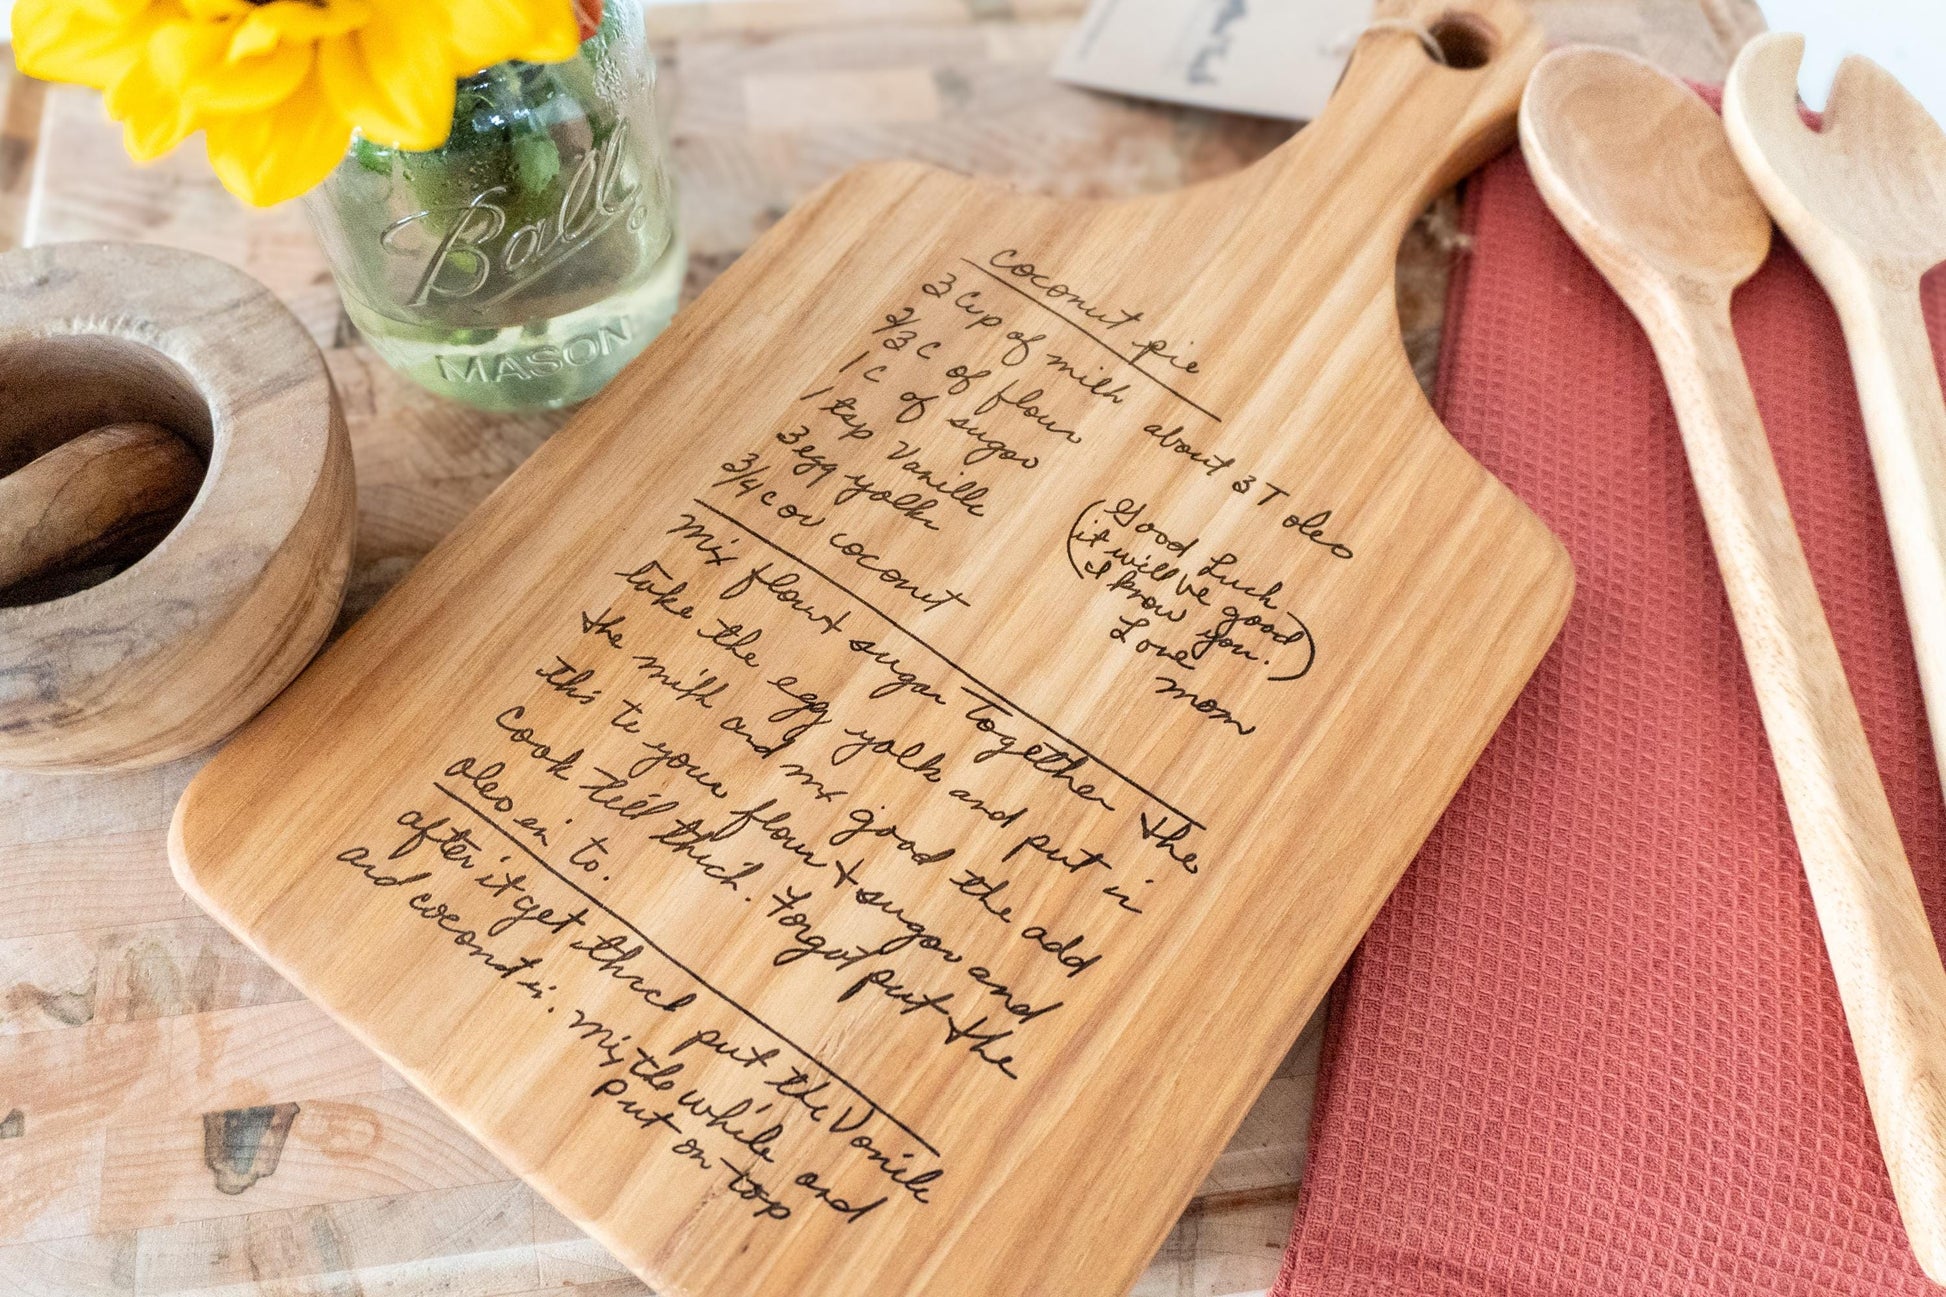 Ball
MASON
coconut pie
3 cup of milk about 3 T oleo
2/3 c of flour
1 c of sugar
1 tsp Vanilla
3 egg yolks
3/4 c ov coconut
(Good Luck
it will be good
I know you.)
Love
mom
mix flour + sugar together the
take the egg yolk and put in
the milk and mix good the add
this to your flour + sugar and
Cook till thick. Forgot put the
oleo in to.
after it get thick put the Vanilla
and coconut in. Mix the while and
put on top